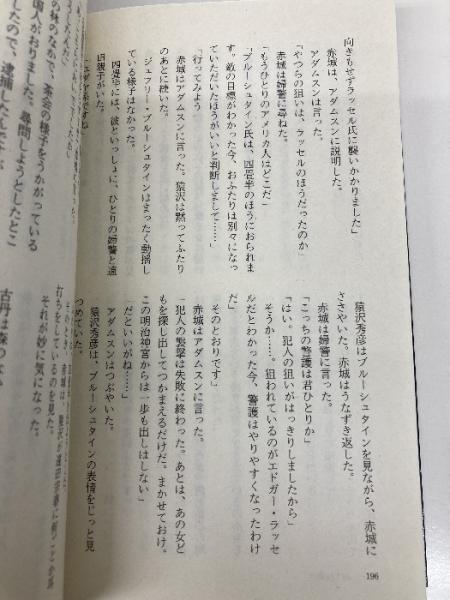 向きもせずラッセル氏に襲いかかりました」
赤城は、アダムスンに説明した。
アダムスンは言った。
「やつらの狙いは、ラッセルのほうだったのか」
赤城は婦警に尋ねた。
「もうひとりのアメリカ人はどこだ」
「ブルーシュタイン氏は、四畳半のほうにおられま
す。敵の目標がわかった今、おふたりは別々になっ
ていただいたほうがいいと判断しまして……」
「行ってみよう」
赤城はアダムスンに言った。猿沢は黙ってふたり
のあとに続いた。
ジェフリー・ブルーシュタインはまったく動揺し
ている様子はなかった。
四畳半には、彼といっしょに、ひとりの婦警と遠
田親子がいた。
猿沢秀彦はブルーシュタインを見ながら、赤城に
ささやいた。赤城はうなずき返した。
赤城は婦警に言った。
「こっちの警護は君ひとりか」
「はい。犯人の狙いがはっきりしましたから」
「そうか……。狙われているのがエドガー・ラッセ
ルだとわかった今、警護はやりやすくなったわけ
だ」
「そのとおりです」
赤城はアダムスンに言った。
「犯人の襲撃は失敗に終わった。あとは、あの女ど
もを探し出してつかまえるだけだ。まかせておけ。
この明治神宮からは一歩も出しはしない」
「だといいがね……」
アダムスンはつぶやいた。
猿沢秀彦は、ブルーシュタインの表情をじっと見
つめていた。
196
の林のなかで、茶会の様子をうかがっている
国人がおりました。尋問しようとしたとこ
したので、逮捕したんですが
打ちをしているのを見た。
それが妙に気になった。